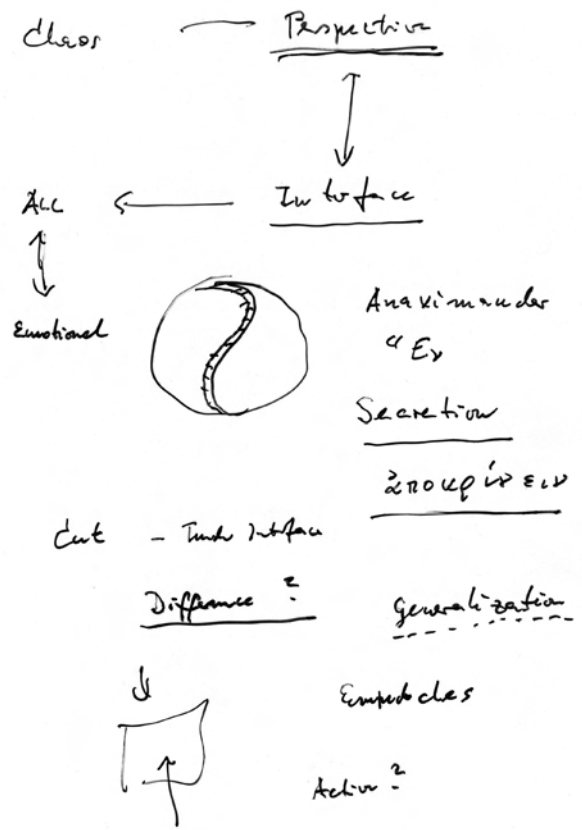 Chaos — Perspective
All Interface
Emotional
Anaximander
"Εν
Secretion
ἀποκρίνειν
Cut - Interface
Difference ?
Generalization
Empedocles
Active ?